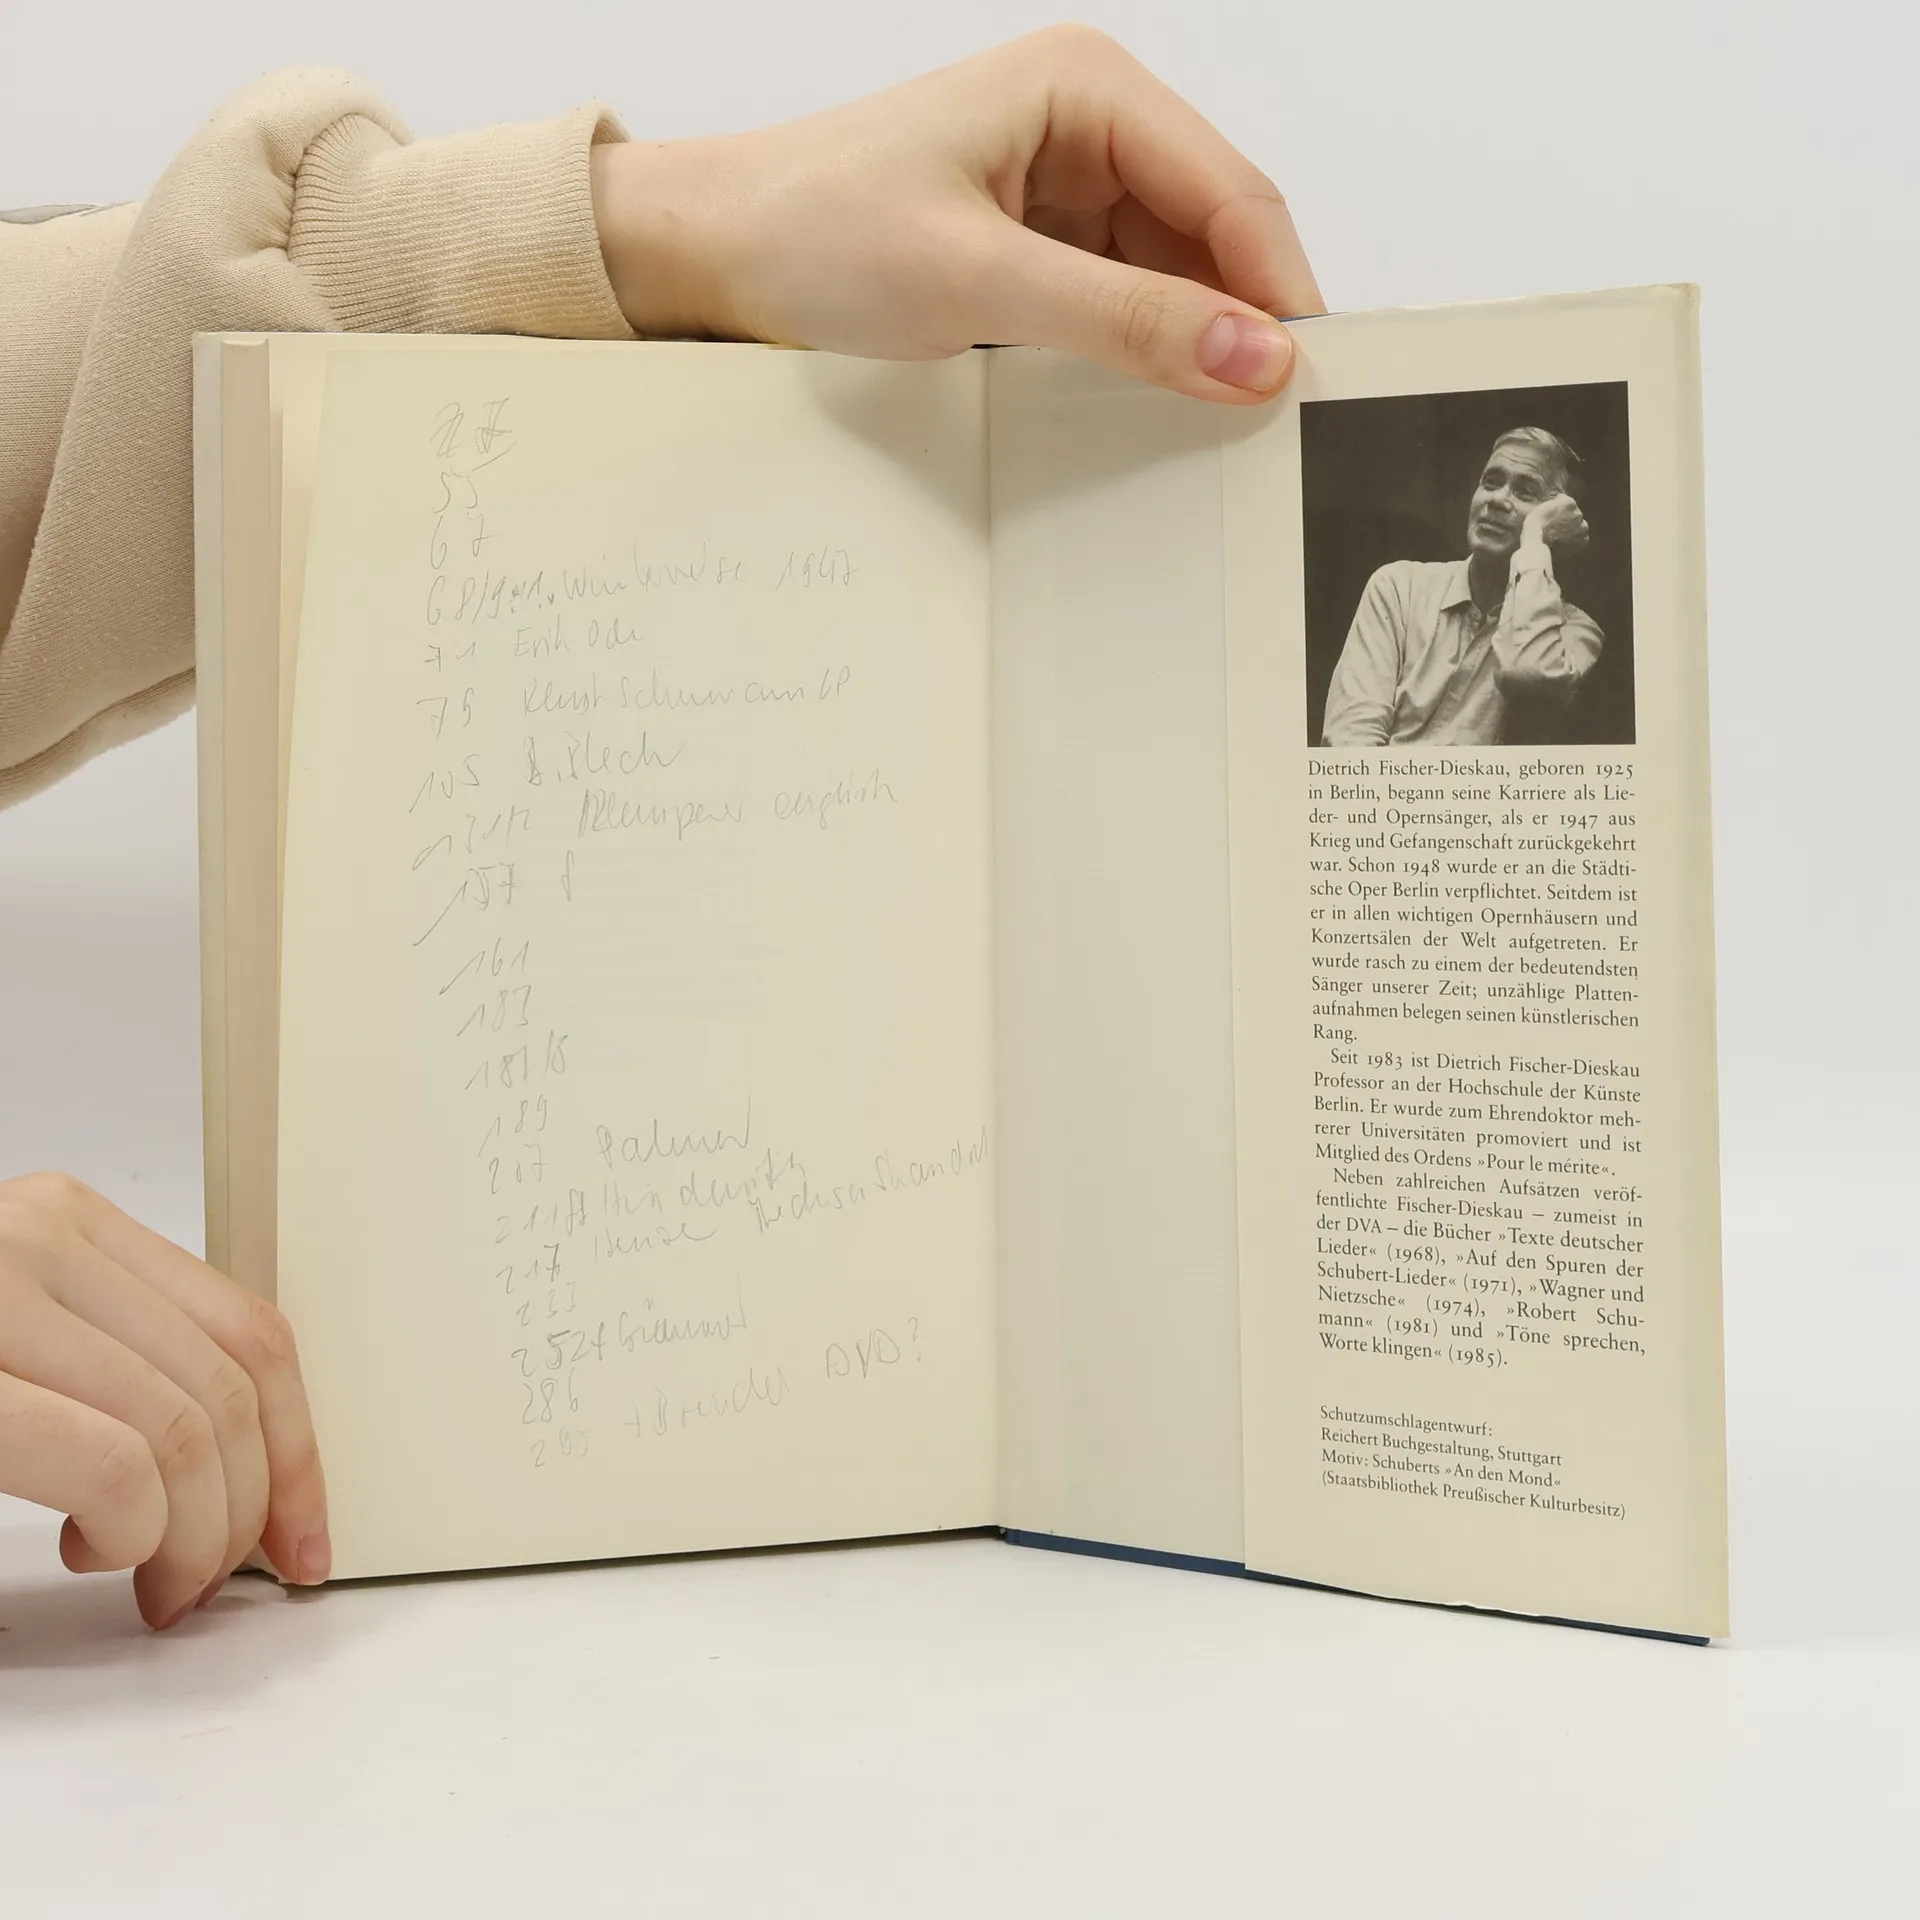 55
67
68/9 1. Winterreise 1947
71 Erik Ode
79
105 Blech
Klemperer englisch
157 f
161
183
187/8
189
207
211 ff Hindemith
217 Henze Medusa Skandal
233
252
286
+ Brendel DVD?
Dietrich Fischer-Dieskau, geboren 1925
in Berlin, begann seine Karriere als Lie-
der- und Opernsänger, als er 1947 aus
Krieg und Gefangenschaft zurückgekehrt
war. Schon 1948 wurde er an die Städti-
sche Oper Berlin verpflichtet. Seitdem ist
er in allen wichtigen Opernhäusern und
Konzertsälen der Welt aufgetreten. Er
wurde rasch zu einem der bedeutendsten
Sänger unserer Zeit; unzählige Platten-
aufnahmen belegen seinen künstlerischen
Rang.
Seit 1983 ist Dietrich Fischer-Dieskau
Professor an der Hochschule der Künste
Berlin. Er wurde zum Ehrendoktor meh-
rerer Universitäten promoviert und ist
Mitglied des Ordens »Pour le mérite«.
Neben zahlreichen Aufsätzen veröf-
fentlichte Fischer-Dieskau – zumeist in
der DVA – die Bücher »Texte deutscher
Lieder« (1968), »Auf den Spuren der
Schubert-Lieder« (1971), »Wagner und
Nietzsche« (1974), »Robert Schu-
mann« (1981) und »Töne sprechen,
Worte klingen« (1985).
Schutzumschlagentwurf:
Reichert Buchgestaltung, Stuttgart
Motiv: Schuberts »An den Mond«
(Staatsbibliothek Preußischer Kulturbesitz)